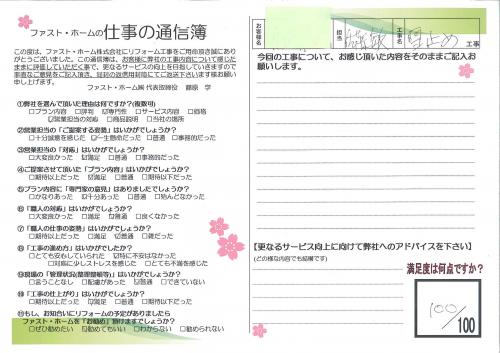 ファスト・ホームの仕事の通信簿
この度は、ファスト・ホーム株式会社にリフォーム工事をご用命頂き誠にあり
がとうございました。この通信簿は、お客様に弊社の工事内容について感じた
ままに評価していただく事で、更なるサービスの向上を目指していきますので
率直なご意見をご記入頂き、同封の返信用封筒にてご返送下さいます様お願い
申し上げます。
ファスト・ホーム㈱ 代表取締役 藤原 学
①弊社を選んで頂いた理由は何ですか?(複数可)
□プラン内容 □評判 ☑専門性 □サービス内容 □価格
☑営業担当の対応 □商品説明 □当社の場所
②営業担当の「ご提案する姿勢」はいかがでしょうか?
□十分誠意を感じた ☑一生懸命だった □普通 □事務的だった
③営業担当の「対応」はいかがでしょうか?
□大変良かった ☑満足 □普通 □事務的だった
④ご提案させて頂いた「プラン内容」はいかがでしょうか?
□期待以上だった ☑満足 □普通 □期待以下だった
⑤プラン内容に「専門家の意見」はありましたでしょうか?
□かなりあった ☑十分あった □普通 □殆んどなかった
⑥「職人の対応」はいかがでしょうか?
□大変良かった □満足 ☑普通 □良くなかった
⑦「職人の仕事の姿勢」はいかがでしょうか?
□期待以上だった ☑満足 □普通 □雑だった
⑧「工事の進め方」はいかがでしたか?
□とても安心していられた ☑特に不安はなかった
□対処に少しストレスを感じた □とても不満を感じた
⑨現場の「管理状況(整理整頓等)」はいかがでしょうか?
□言うことなし □配慮があった ☑普通 □できていない
⑩「工事の仕上がり」はいかがでしょうか?
□期待以上だった ☑満足 □普通 □期待以下だった
⑪もし、お知合いにリフォームの予定がありましたら
ファスト・ホームを「お勧め」頂けますでしょうか?
□ぜひ勧めたい ☑勧めてもいい □わからない □勧められない
お客様名
担当
工事名
止め
工事
今回の工事について、お感じ頂いた内容をそのままご記入お
願いします。
【更なるサービス向上に向けて弊社へのアドバイスを下さい】
(どの様な内容でも結構です)
満足度は何点ですか?
100/100